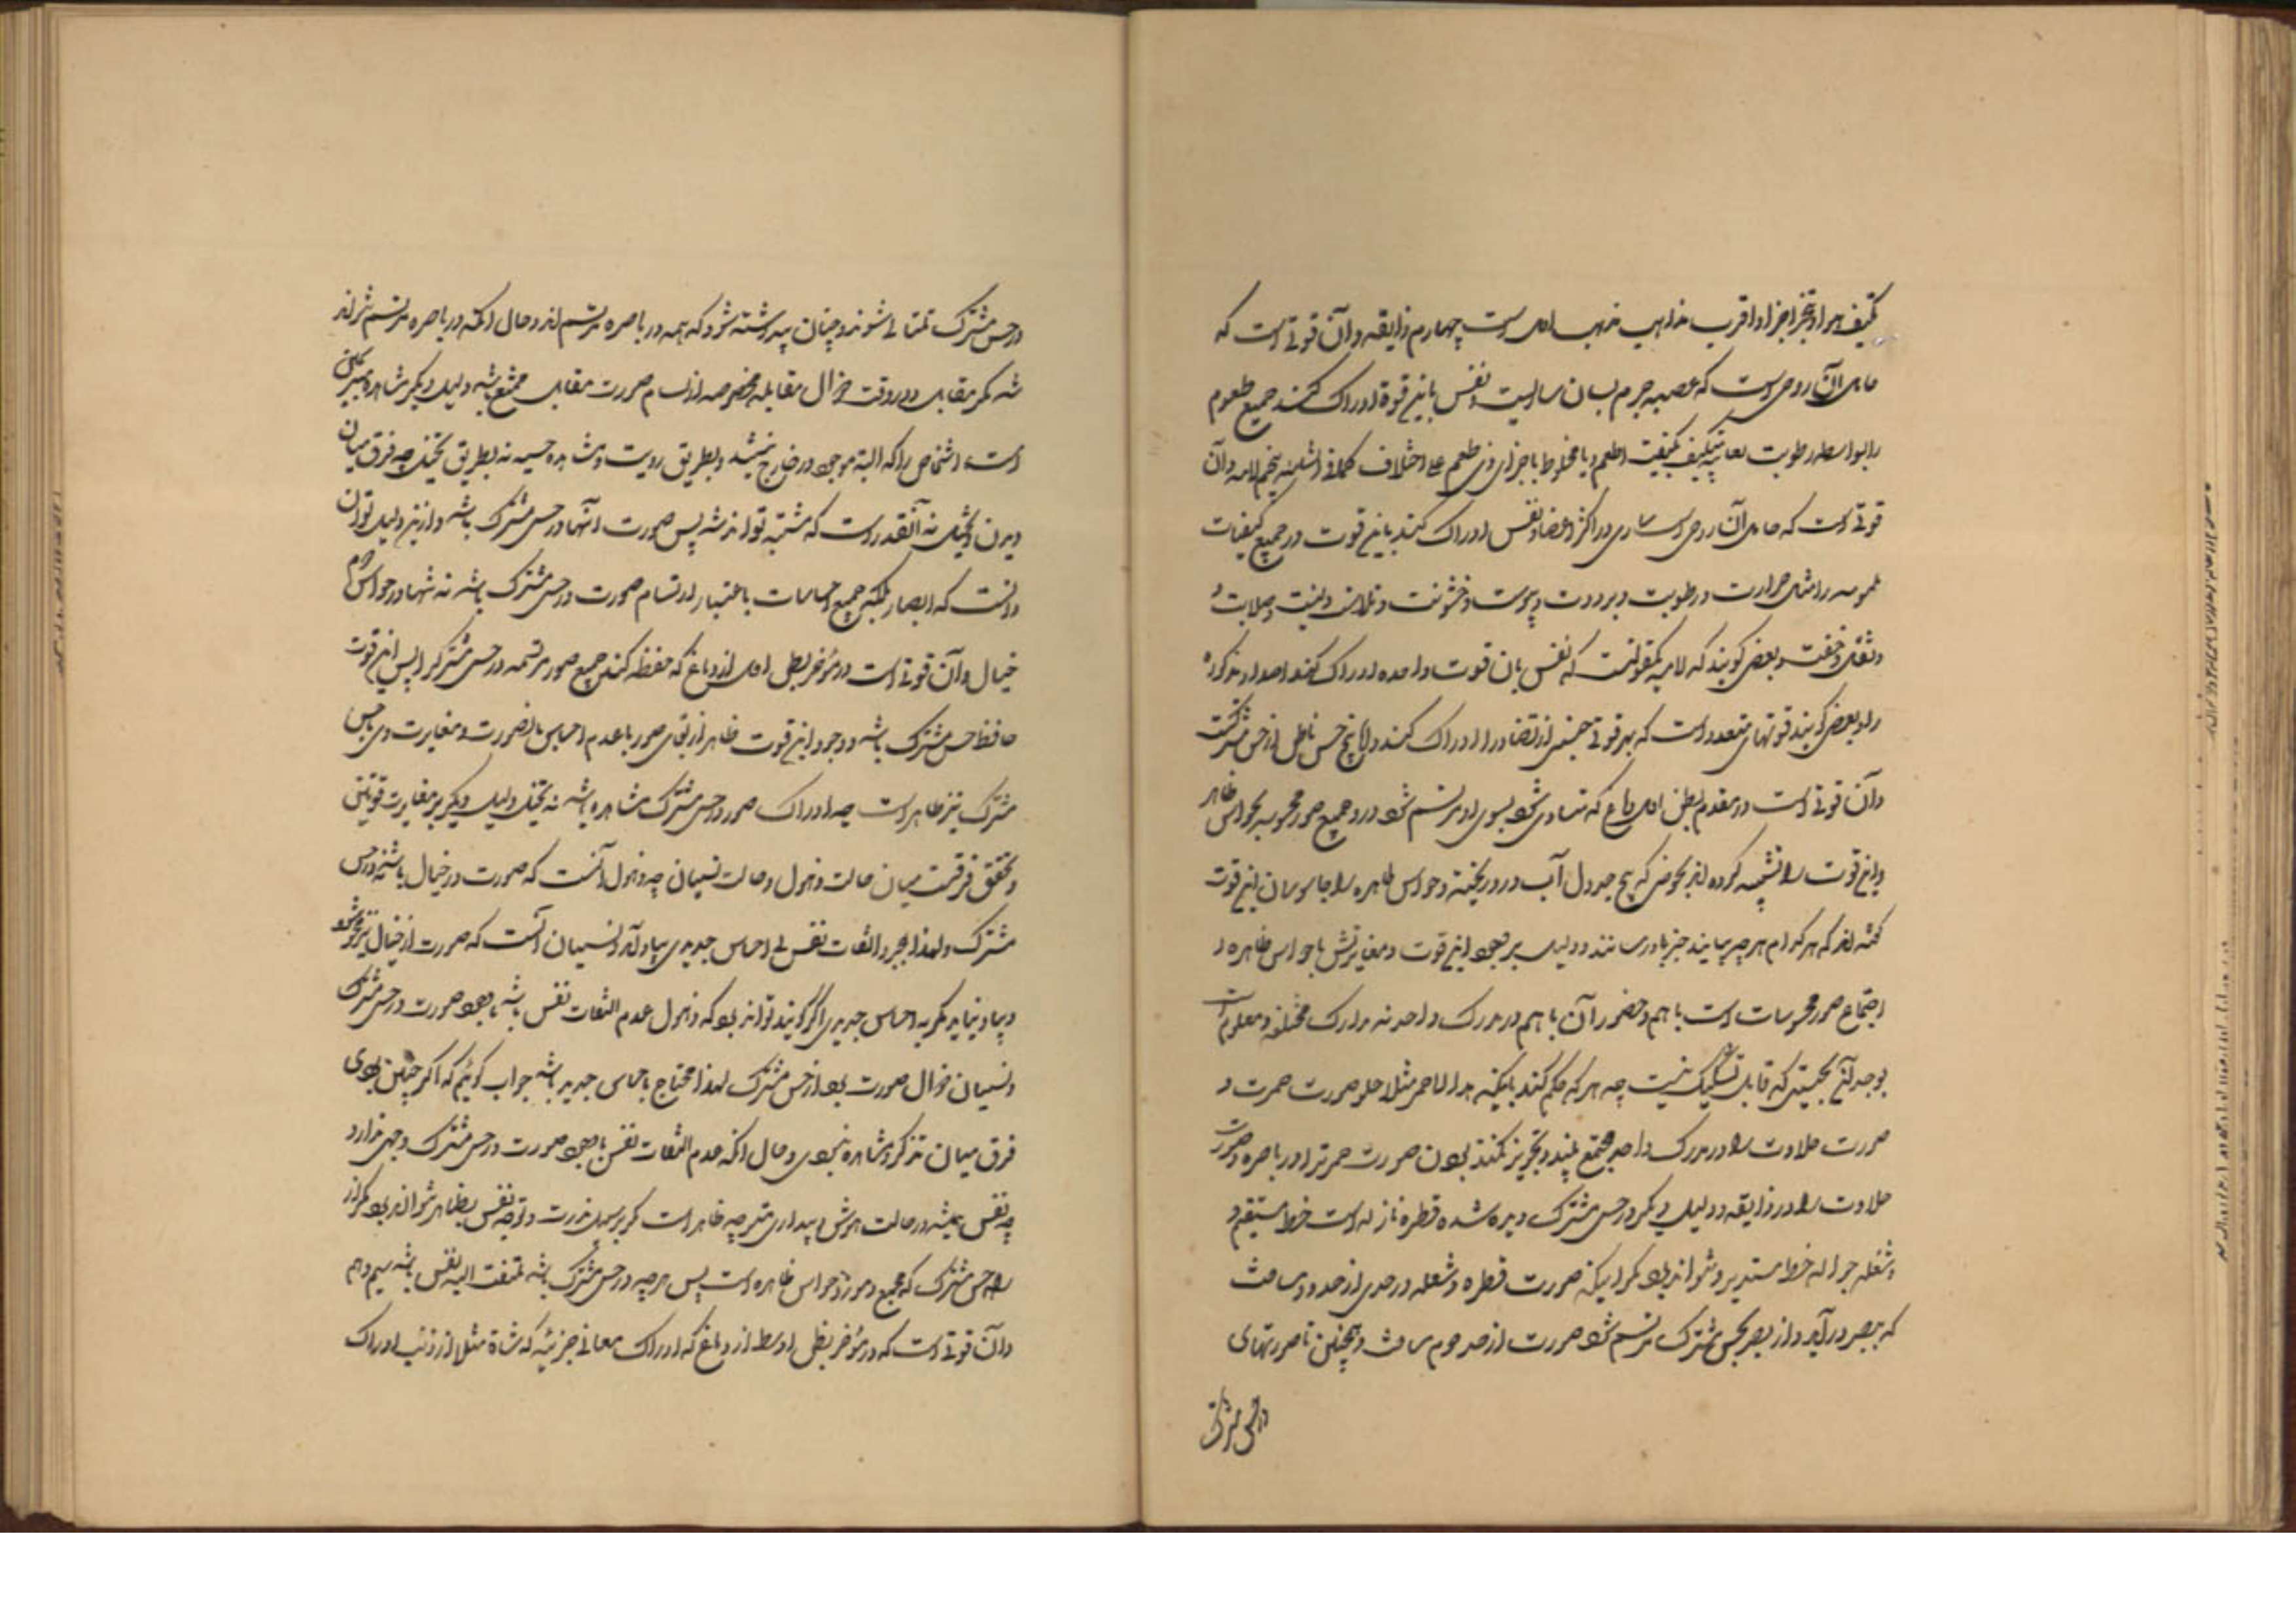 تکیف هوا و تبخر اجزا و اقرب مذاهب مذهب اول است چهارم ذایقه و آن قوتی است که
حامل آن روحی است که عصبه جرم لسان ساریست و نفس باین قوة ادراک کند جمیع طعوم
را بواسطه رطوبت لعابیه متکیف بکیفیت طعم و یا مخلوط باجزای ذی طعم علی اختلاف پنجم لامسه و آن
قوتی است که حامل آن روحی است ساری در اکثر اعضا و نفس ادراک کند باین قوت در جمیع کیفیات
ملموسه را مثل حرارت و رطوبت و برودت و یبوست و خشونت و ملاست و لینت و صلابت و
و ثقل و خفت و بعضی گویند که لامسه یکقوتست که نفس بان قوت واحده ادراک کند اضداد مذکوره
را و بعضی گویند قوتهای متعدده است که بهر قوتی جنسی از تضاد را ادراک کند و اما پنج حس باطن اول حس مشترکست
و آن قوتی است در مقدم بطن اول دماغ که متادی شود بسوی او و مرتسم شود درو جمیع صور محسوسه بحواس ظاهر
و این قوت را تشبیه کرده اند بحوضی که پنج جدول آب درو ریخته و حواس ظاهره را جاسوسان این قوت
گفته اند که هر کدام هر چه بیابند خبر باو رسانند و دلیل بر وجود این قوت و مغایرتش با حواس ظاهره و
اجتماع صور محسوسات است با هم و حضور آن با هم در مدرک واحد نه مدارک مختلفه و معلوم است
بوجدان بحیثیتی که قابل تشکیک نیست چه هر که حکم کند باینکه هذا الاحمر مثلا حلو صورت حمرت و
صورت حلاوت را در مدرک واحد مجتمع بیند و تجویز نکند بودن صورت حمرت را در باصره و صورت
حلاوت را در ذایقه و دلیل دیگر در حس مشترک دیده شده قطره نازله است خط مستقیم و
و شعله جواله خط مستدیر و نتواند بود مگر اینکه صورت قطره و شعله در حدی از حدود مسافت
که ببصر درآید و از بصر بحس مشترک مرتسم شود صورت از حد دوم مسافت و همچنین تا صورتهای
در حس مشترک
در حس مشترک متتالی شوند و چنان پیوسته شود که همه در باصره مرتسم اند و حال آنکه در باصره مرتسم نتواند
شد مگر مقابل و در وقت زوال مقابله مخصوصه ارتسام صورت مقابل ممتنع باشد دلیل دیگر مشاهده مبرسمین
است اشخاصی را که البته موجود در خارج نیستند و بطریق رویت و مشاهده حسیه نه بطریق تخیل چه فرق میان
دیدن و تخیل نه آنقدر است که مشتبه تواند شد پس صورت آنها در حس مشترک باشد و از این دلیل توان
دانست که ابصار بلکه جمیع احساسات باعتبار ارتسام صورت در حس مشترک باشد نه تنها در حواس دوم
خیال و آن قوتی است در موخر بطن اول از دماغ که حفظ کند جمیع صور مرتسمه در حس مشترک را پس این قوت
حافظ حس مشترک باشد و وجود این قوت ظاهر از بقای صور با عدم احساس بالضرورت و مغایرت وی با حس
مشترک نیز ظاهر است چه ادراک صور در حس مشترک مشاهده باشد نه تخیل دلیل دیگر بر مغایرت قوتین
و تحقق فرقست میان حالت ذهول و حالت نسیان چه ذهول آنست که صورت در خیال باشد نه در حس
مشترک و لهذا بمجرد التفات نفس بی احساس جدید بیاد آید و نسیان آنست که صورت از خیال نیز محو شود
و بیاد نیاید مگر به احساس جدید و اگر گویند تواند بود که ذهول عدم التفات نفس باشد با وجود صورت در حس مشترک
و نسیان زوال صورت بود از حس مشترک لهذا محتاج باحساس جدید باشد جواب گوئیم که اگر چنین بودی
فرق میان تذکر و مشاهده نبودی و حال آنکه عدم التفات نفس با وجود صورت در حس مشترک وجهی ندارد
چه نفس همیشه در حالت هوش و بیداری متوجه ظاهر است مگر بر سبیل ندرت و توجه نفس بظاهر نتواند بود مگر از
راه حس مشترک که مجمع و مورد حواس ظاهره است پس هر چه در حس مشترک باشد ملتفت الیه نفس باشد سیم وهم
و آن قوتی است که در موخر بطن اوسط از دماغ که ادراک معانی جزئیه که شاة مثلا از ذئب ادراک